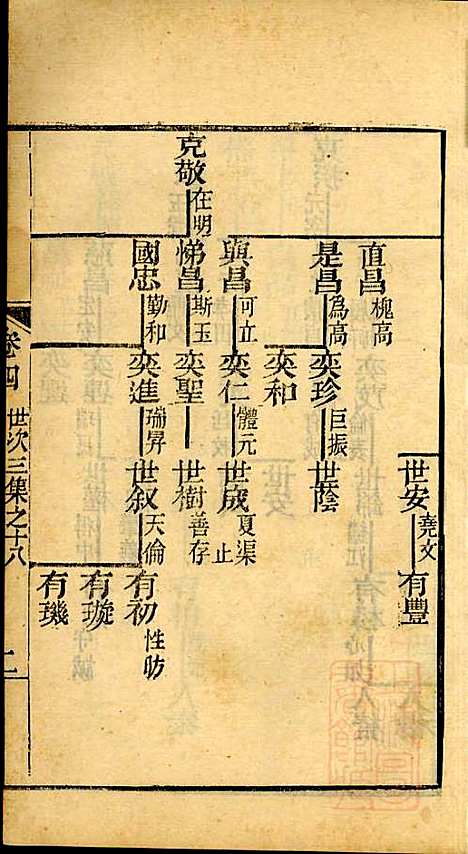 克敬 在明
直昌 槐高
是昌 為高 奕珍 巨振 世蔭
奕和
與昌 可立 奕仁 體元 世成 夏渠 止
悌昌 斯玉 奕聖 世樹 善存
國忠 勤和 奕進 瑞昇 世叙 天倫 有初 性昉
有璇
有璣
世安 堯文 有豐
卷四 世次三集之十八 二